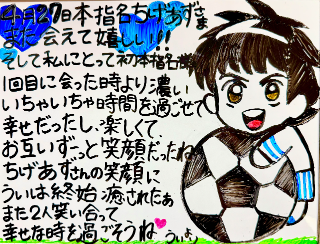 4月27日本指名ちげあずさま
また会えて嬉しい!!!
そして私にとって初本指名様
1回目に会った時より濃い
いちゃいちゃ時間を過ごせて
幸せだったし、楽しくて、
お互いずーっと笑顔だったね
ちげあずさんの笑顔に
ういは終始癒されたぁ
また2人笑い合って
幸せな時を過ごそうね
ういより